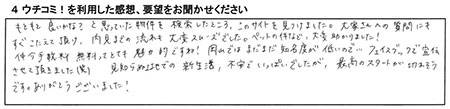 4 ウチコミ！を利用した感想、要望をお聞かせください
もともと良いかな？と思っていた物件を検索したところ、このサイトを見つけました。大家さんへの質問にも
すぐこたえて頂け、内見までの流れも大変スムーズでした。ペットの件など、大変助かりました！
仲介手数料無料ってとても魅力的ですね！岡山ではまだまだ知名度が低いので…フェイスブックで宣伝
させて頂きました(笑) 見知らぬ土地での新生活、不安でいっぱいでしたが、最高のスタートが切れそう
です。ありがとうございました！